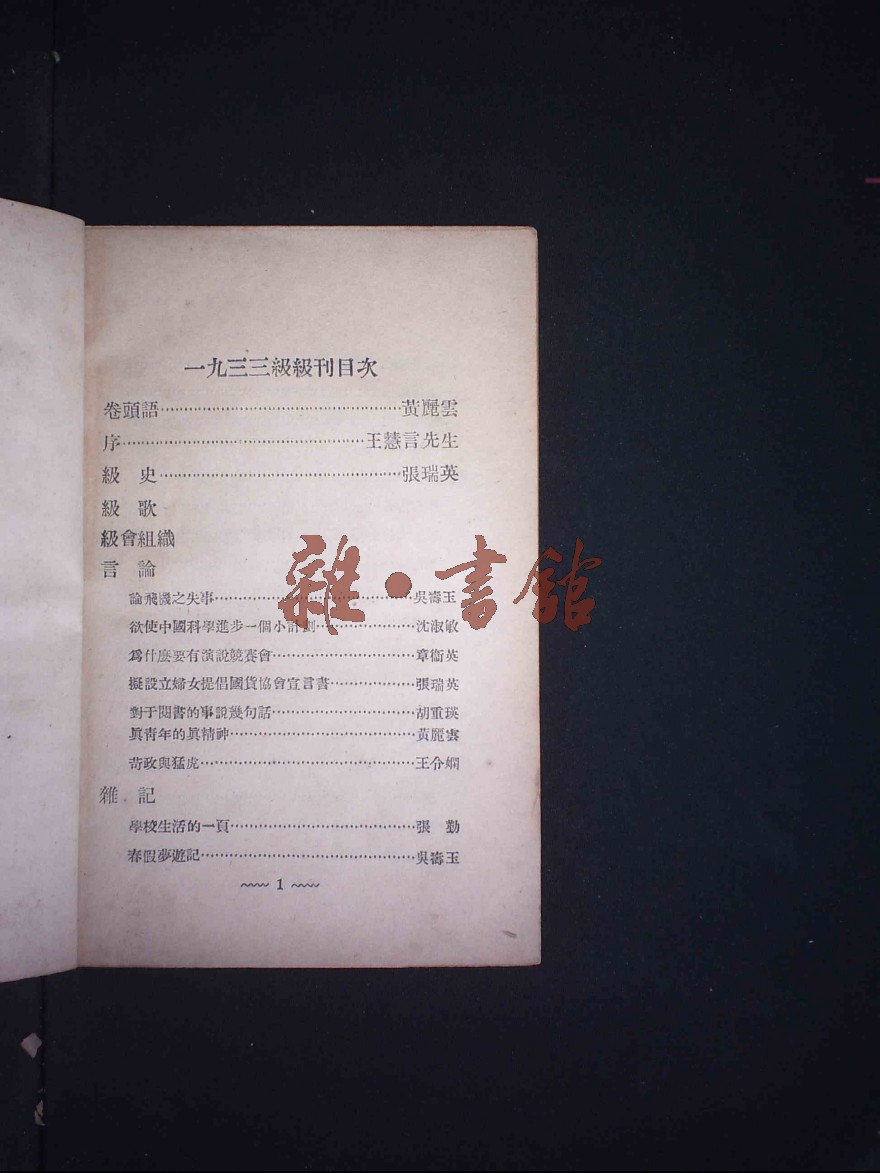 一九三三級級刊目次
卷頭語……………………………………黃麗雲
序……………………………………王慧言先生
級　史……………………………………張瑞英
級　歌
級會組織
言　論
論飛機之失事……………………………………吳壽玉
欲使中國科學進步一個小計劃…………………沈淑敏
爲什麼要有演說競賽會…………………………章衞英
擬設立婦女提倡國貨協會宣言書………………張瑞英
對于閱書的事說幾句話…………………………胡重瑛
眞靑年的眞精神…………………………………黃麗雲
苛政與猛虎………………………………………王令嫻
雜　記
學校生活的一頁…………………………………張　勤
春假夢遊記………………………………………吳壽玉
1
雜·書館